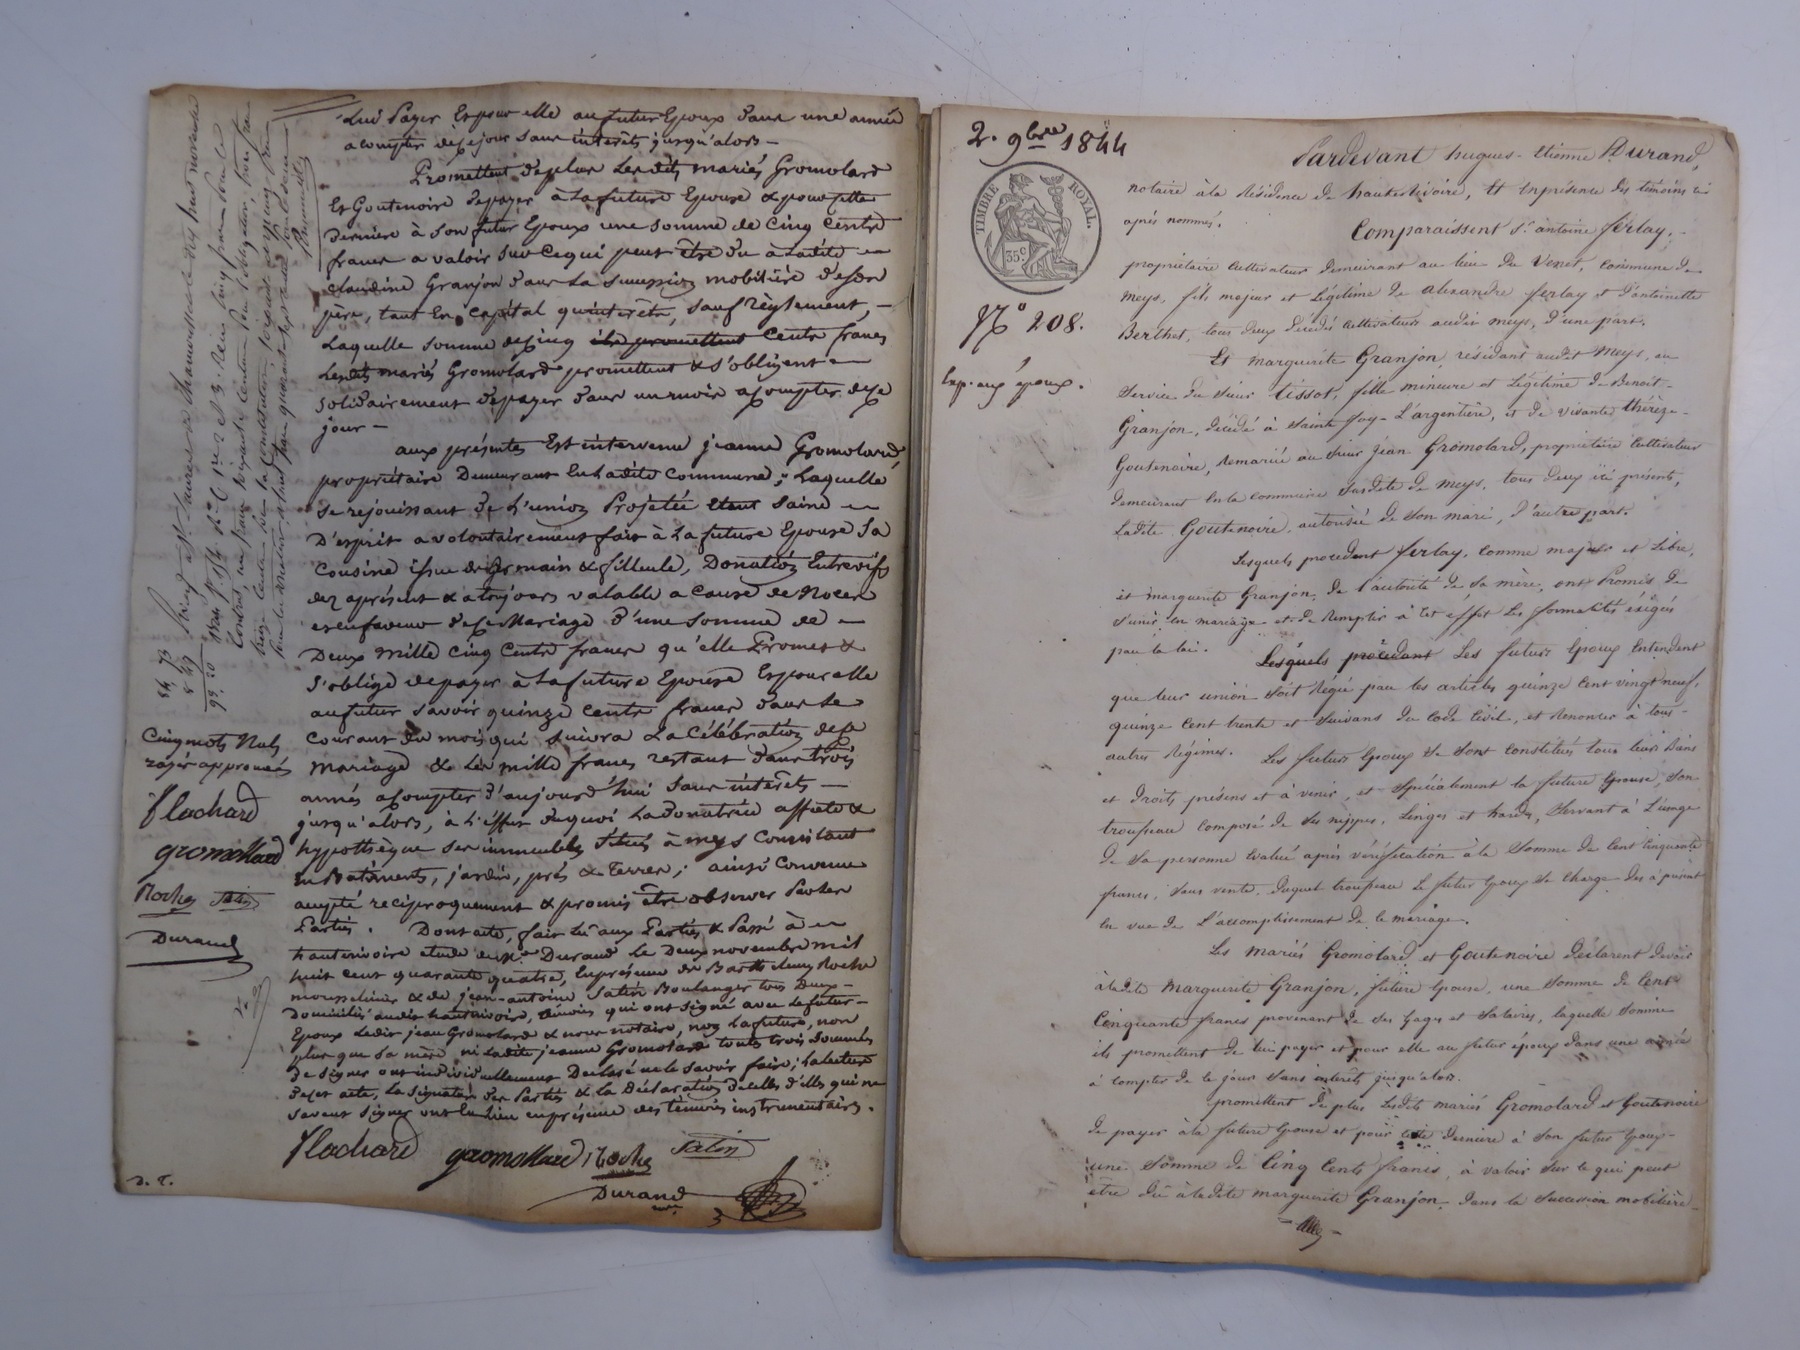 Lui payer Et pour elle au futur Epoux dans une année
a compter de ce jour sans intérêts jusqu'alors –
Promettent de plus Les dits mariés Gromolard
Et Goutenoire de payer à La future Epouse & pour cette
Dernière à Son futur Epoux une Somme de Cinq Cents
francs a valoir sur ce qui peut être du a Ladite –
Claudine Granjon dans La Succession mobilière de son
père, tant En Capital qu'intérêts, Sauf règlement, –
Laquelle Somme de Cinq ils promettent Cents francs
Lesdits mariés Gromolard promettent & s'obligent –
Solidairement de payer dans un mois a compter de ce
jour –
aux présentes Est intervenue jeanne Gromolard,
propriétaire Demeurant En Ladite Commune ; Laquelle
Se rejouissant De L'union Projetée Etant Saine –
D'esprit a volontairement fait à La future Epouse Sa
Cousine issue de Germain & filleule, Donation Entrevifs
dez aprésent & a toujours valable a Cause de Noces
et en faveur de ce Mariage D'une Somme de –
Deux Mille Cinq Cents francs qu'elle Promet &
S'oblige de payer à La future Epouse Et pour elle
au futur Savoir quinze Cents francs dans Le
Courant du mois qui Suivra La Célébration de ce
Mariage & Les mille francs restant dans trois
années a Compter d'aujourd'hui Sans intérêts –
jusqu'alors, à L'effet de quoi La donatrice affecte &
hypothèque ses immeubles Situés à Meys Consistant
En Batiments, jardin, prés & Terres ; ainsi Convenu
accepté reciproquement & promis être observer Par Les
Parties. Dont acte, fait Lu aux Parties & Passé à –
hauterivoire etude de Me Durand Le Deux novembre mil
huit cent quarante quatre, En présence de Barthelemy Roche
mousselinier & de jean-antoine Satin Boulanger tous Deux –
Domiciliés audit hauterivoire, témoins qui ont Signé avec Le futur –
Epoux Ledit jean Gromolard & nous notaire, non La future, non
plus que Sa mère ni Ladite jeanne Gromolard toutes trois Sommées
De Signer ont individuellement Declaré ne le Savoir faire ; La lecture
de cet acte, La Signature des Parties & La Déclaration de celles d'elles qui ne
Savent Signer ont Eu Lieu en présence des témoins instrumentaires.
Cinq mots Nuls
rayés approuvés
Flachard
gromollard
Roche Satin
Durand
Flachard gromollard Roche Satin
Durand
D. T.
84, 73
8 49
93. 20
2. 9bre 1844
TIMBRE ROYAL.
35c
No 208.
Exp. aux époux.
Pardevant hugues-Etienne Durand,
notaire à la Résidence de hauterivoire, Et En présence des témoins ci
après nommés.
Comparaissent Sr antoine ferlay, –
propriétaire Cultivateur Demeurant au lieu du Vezet, Commune de
Meys, fils majeur et Légitime de alexandre ferlay et d'antoinette
Berthet, tous deux décédés Cultivateurs audit Meys, d'une part.
Et marguerite Granjon, résidant audit Meys, au
Service du Sieur tissot, fille mineure et Légitime de Benoît –
Granjon, décédé à Sainte foy-L'argentière, et de vivante thérèze –
Goutenoire, Remariée au Sieur Jean Gromolard, propriétaire Cultivateur
demeurant En la commune Susdite de Meys, tous deux ici présents,
Ladite Goutenoire, autorisée de Son mari, d'autre part.
Lesquels procédant ferlay, Comme majeur et Libre,
et marguerite Granjon, de l'autorité de sa mère, ont Promis de
S'unir en mariage et de Remplir à Cet effet Les formalités éxigés
par la loi. Lesquels procédant Les futurs Epoux Entendent
que leur union Soit Régie par les articles quinze Cent vingt neuf,
quinze Cent trente et Suivans du Code Civil, et Renoncer à tous –
autres Régimes. Les futurs Epoux Se Sont Constitués tous leurs Biens
et Droits présens et à venir, et Spécialement la future Epouse, Son
trousseau Composé de Ses nippes, Linges et hardes, Servant à L'usage
de Sa personne Evalué après vérification à la Somme de Cent Cinquante
francs, Sans vente. Duquel trousseau Le futur Epoux Se Charge Dès à présent
En vue de L'accomplissement de le mariage.
Les Mariés Gromolard et Goutenoire déclarent devoir
à ladite Marguerite Granjon, future Epouse, une Somme de Cent
Cinquante francs provenant de Ses Gages et Salaires, laquelle Somme
ils promettent de lui payer et pour elle au futur époux dans une année
à compter de ce jour Sans intérêts jusqu'alors.
promettent de plus Lesdits mariés Gromolard et Goutenoire
de payer à la future Epouse et pour cette dernière à Son futur Epoux –
une Somme de Cinq Cents francs, à valoir Sur ce qui peut
être dû à ladite marguerite Granjon, dans la Succession mobilière –